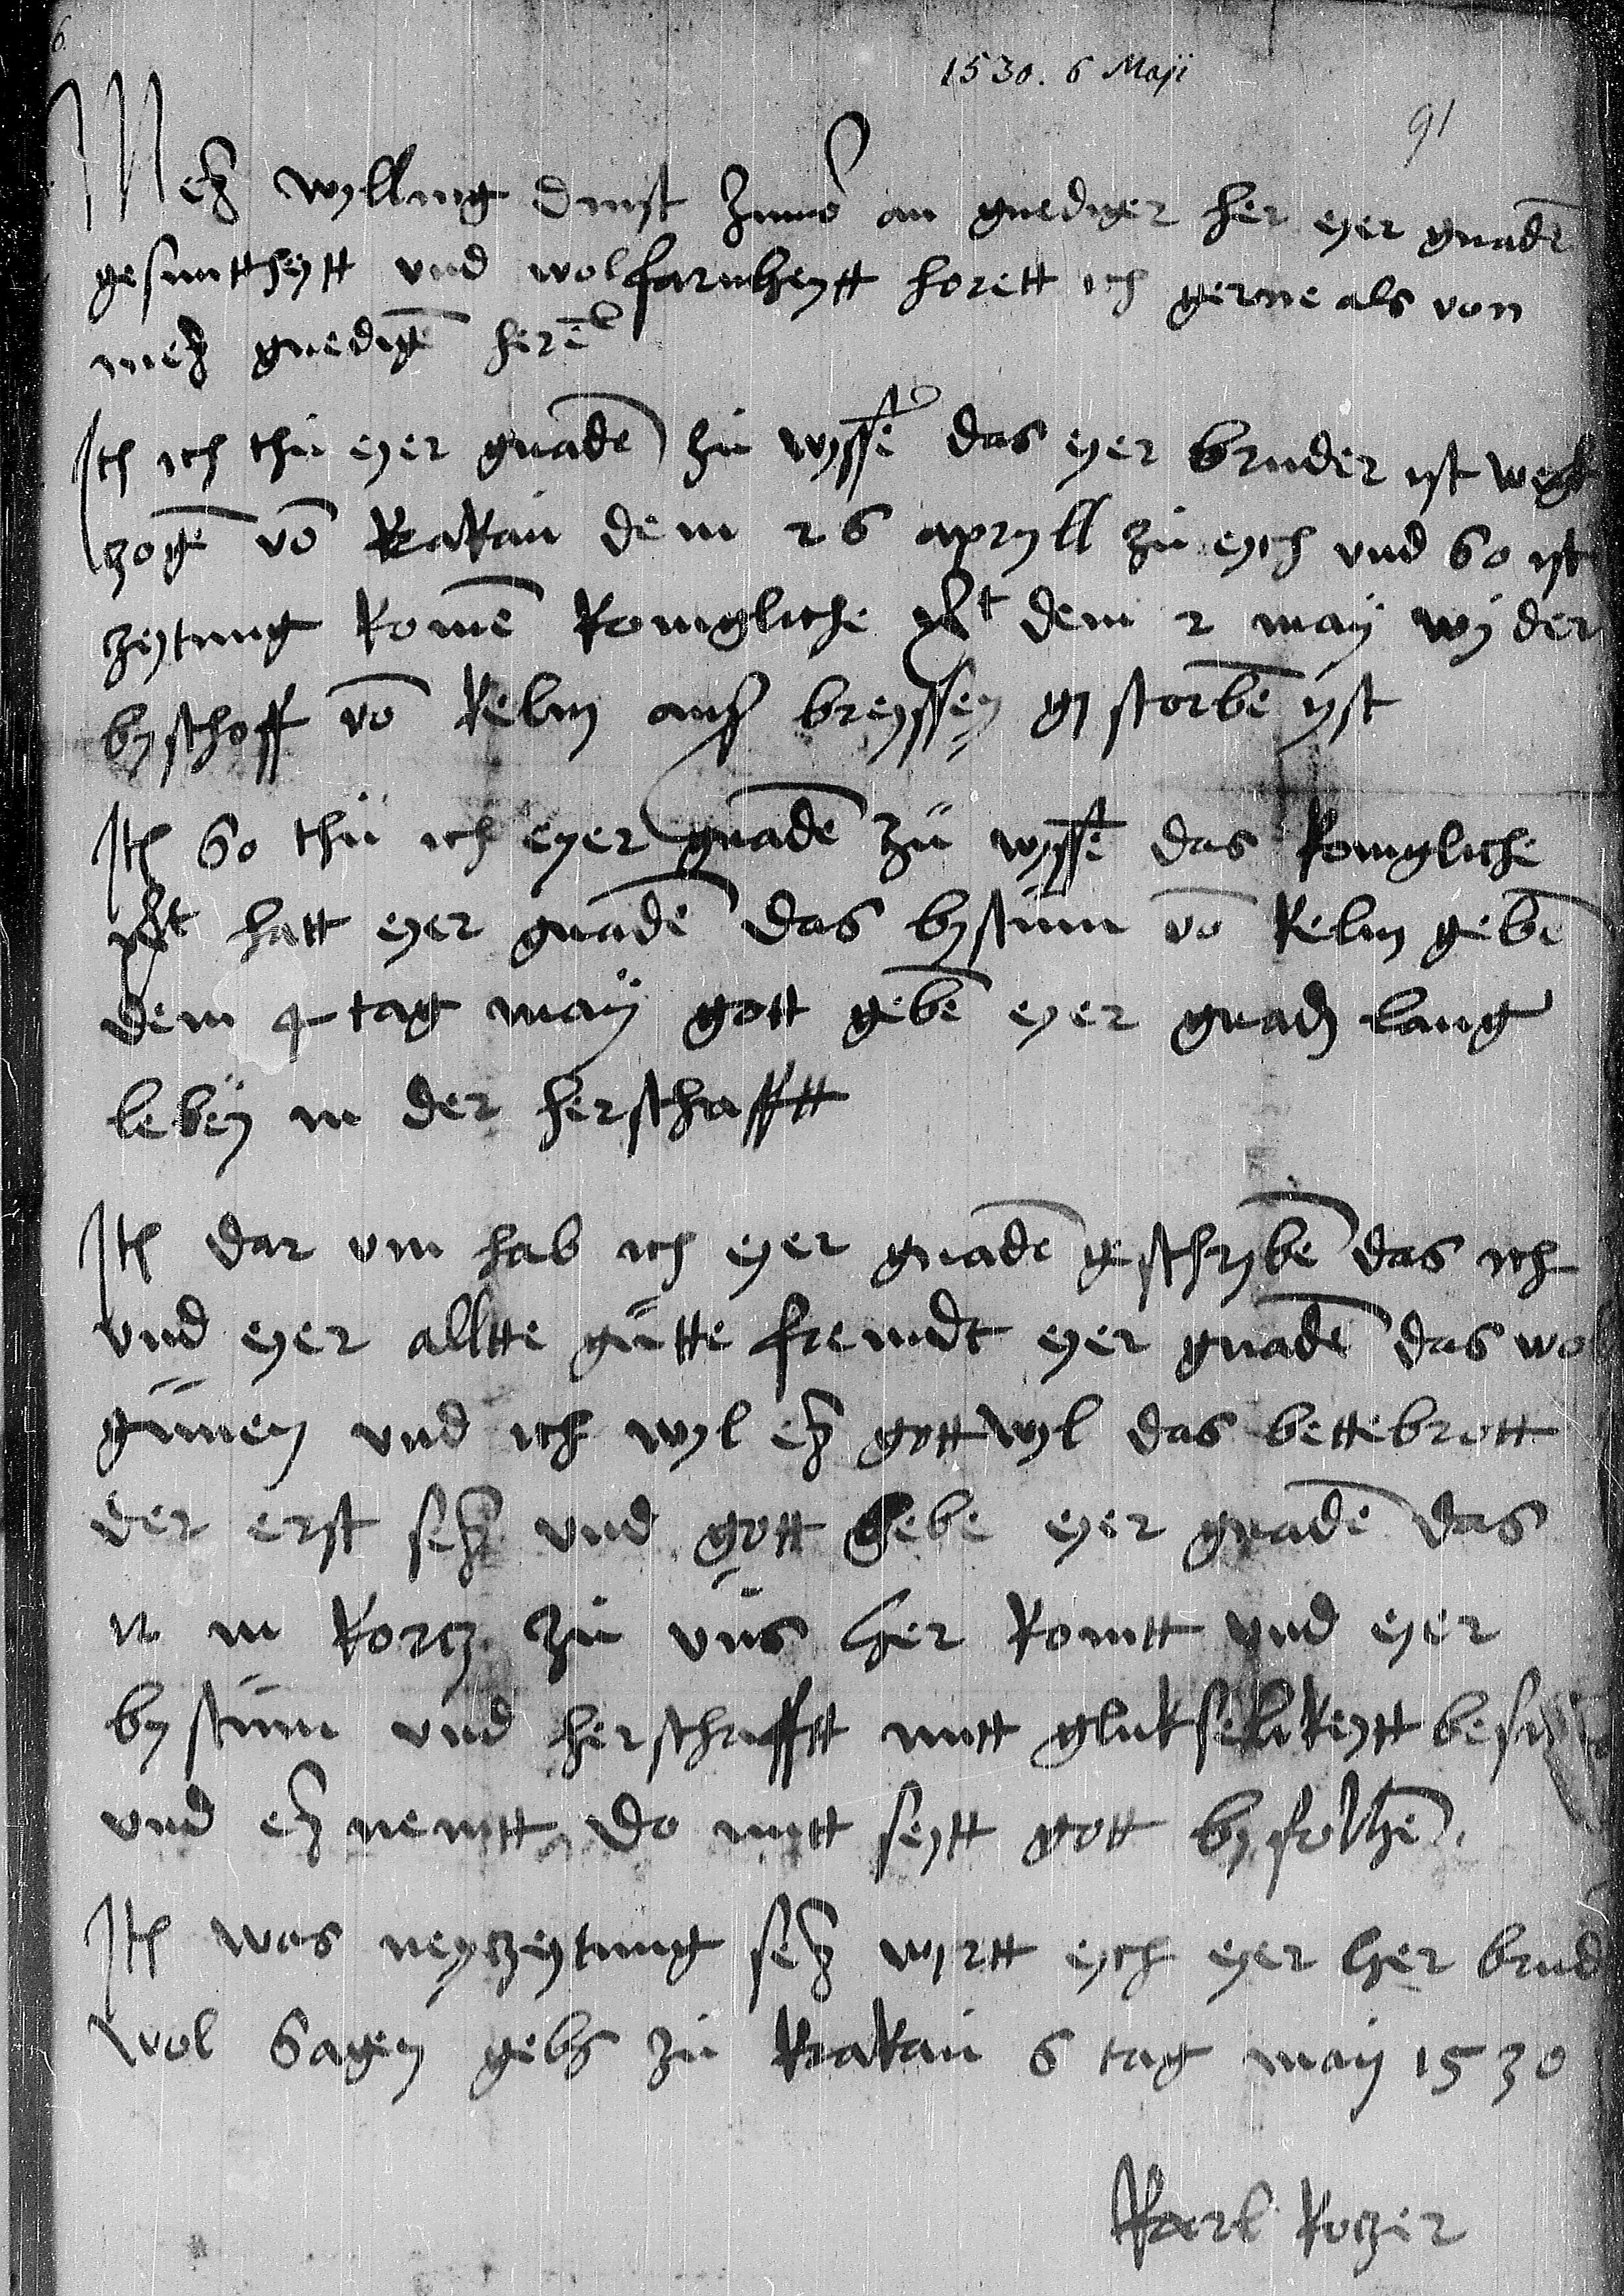 6
1530. 6 Maji
91
Meyn wyllyng dinst zuuor an gnediger her eyer gnadē
gesunttheytt vnd wolfarnheytt horett ich gerne als von
meyn gnedigē herē
Itē ich thu eyer gnadē zu wyssē das eyer bruder ist wegk
zogē vō krakau dem 26 apryll zu eych vnd so ist
zeytung komē konigliche Mt dem 2 may wy der
byschoff vō kelm auß breyssen gestorbē yst
Itē so thu ich eyer gnadē zu wyssē das konigliche
Mt hatt eyer gnadē das bystum vō kelm gebē
dem 4 tag may gott gebē eyer gnadn lang
leben in der herschafftt
Itē dar vm hab ich eyer gnadē geschrybē das ich
vnd eyer alltte gutte freindt eyer gnadē das wol
gunen vnd ich wyl eyn gott wyl das bettebrott
der erst seyn vnd gott gebe eyer gnadē das
ir in korcz zu vns her komtt vnd eyer
bystum vnd herschafftt mitt glukselikeytt
vnd eyn nemtt do mitt seytt gott byfolhē.
Itē was neyczeytung seyn wirtt eych eyer her brud
wol sagen gebn zu krakau 6 tag may 1530
Karl Roczer